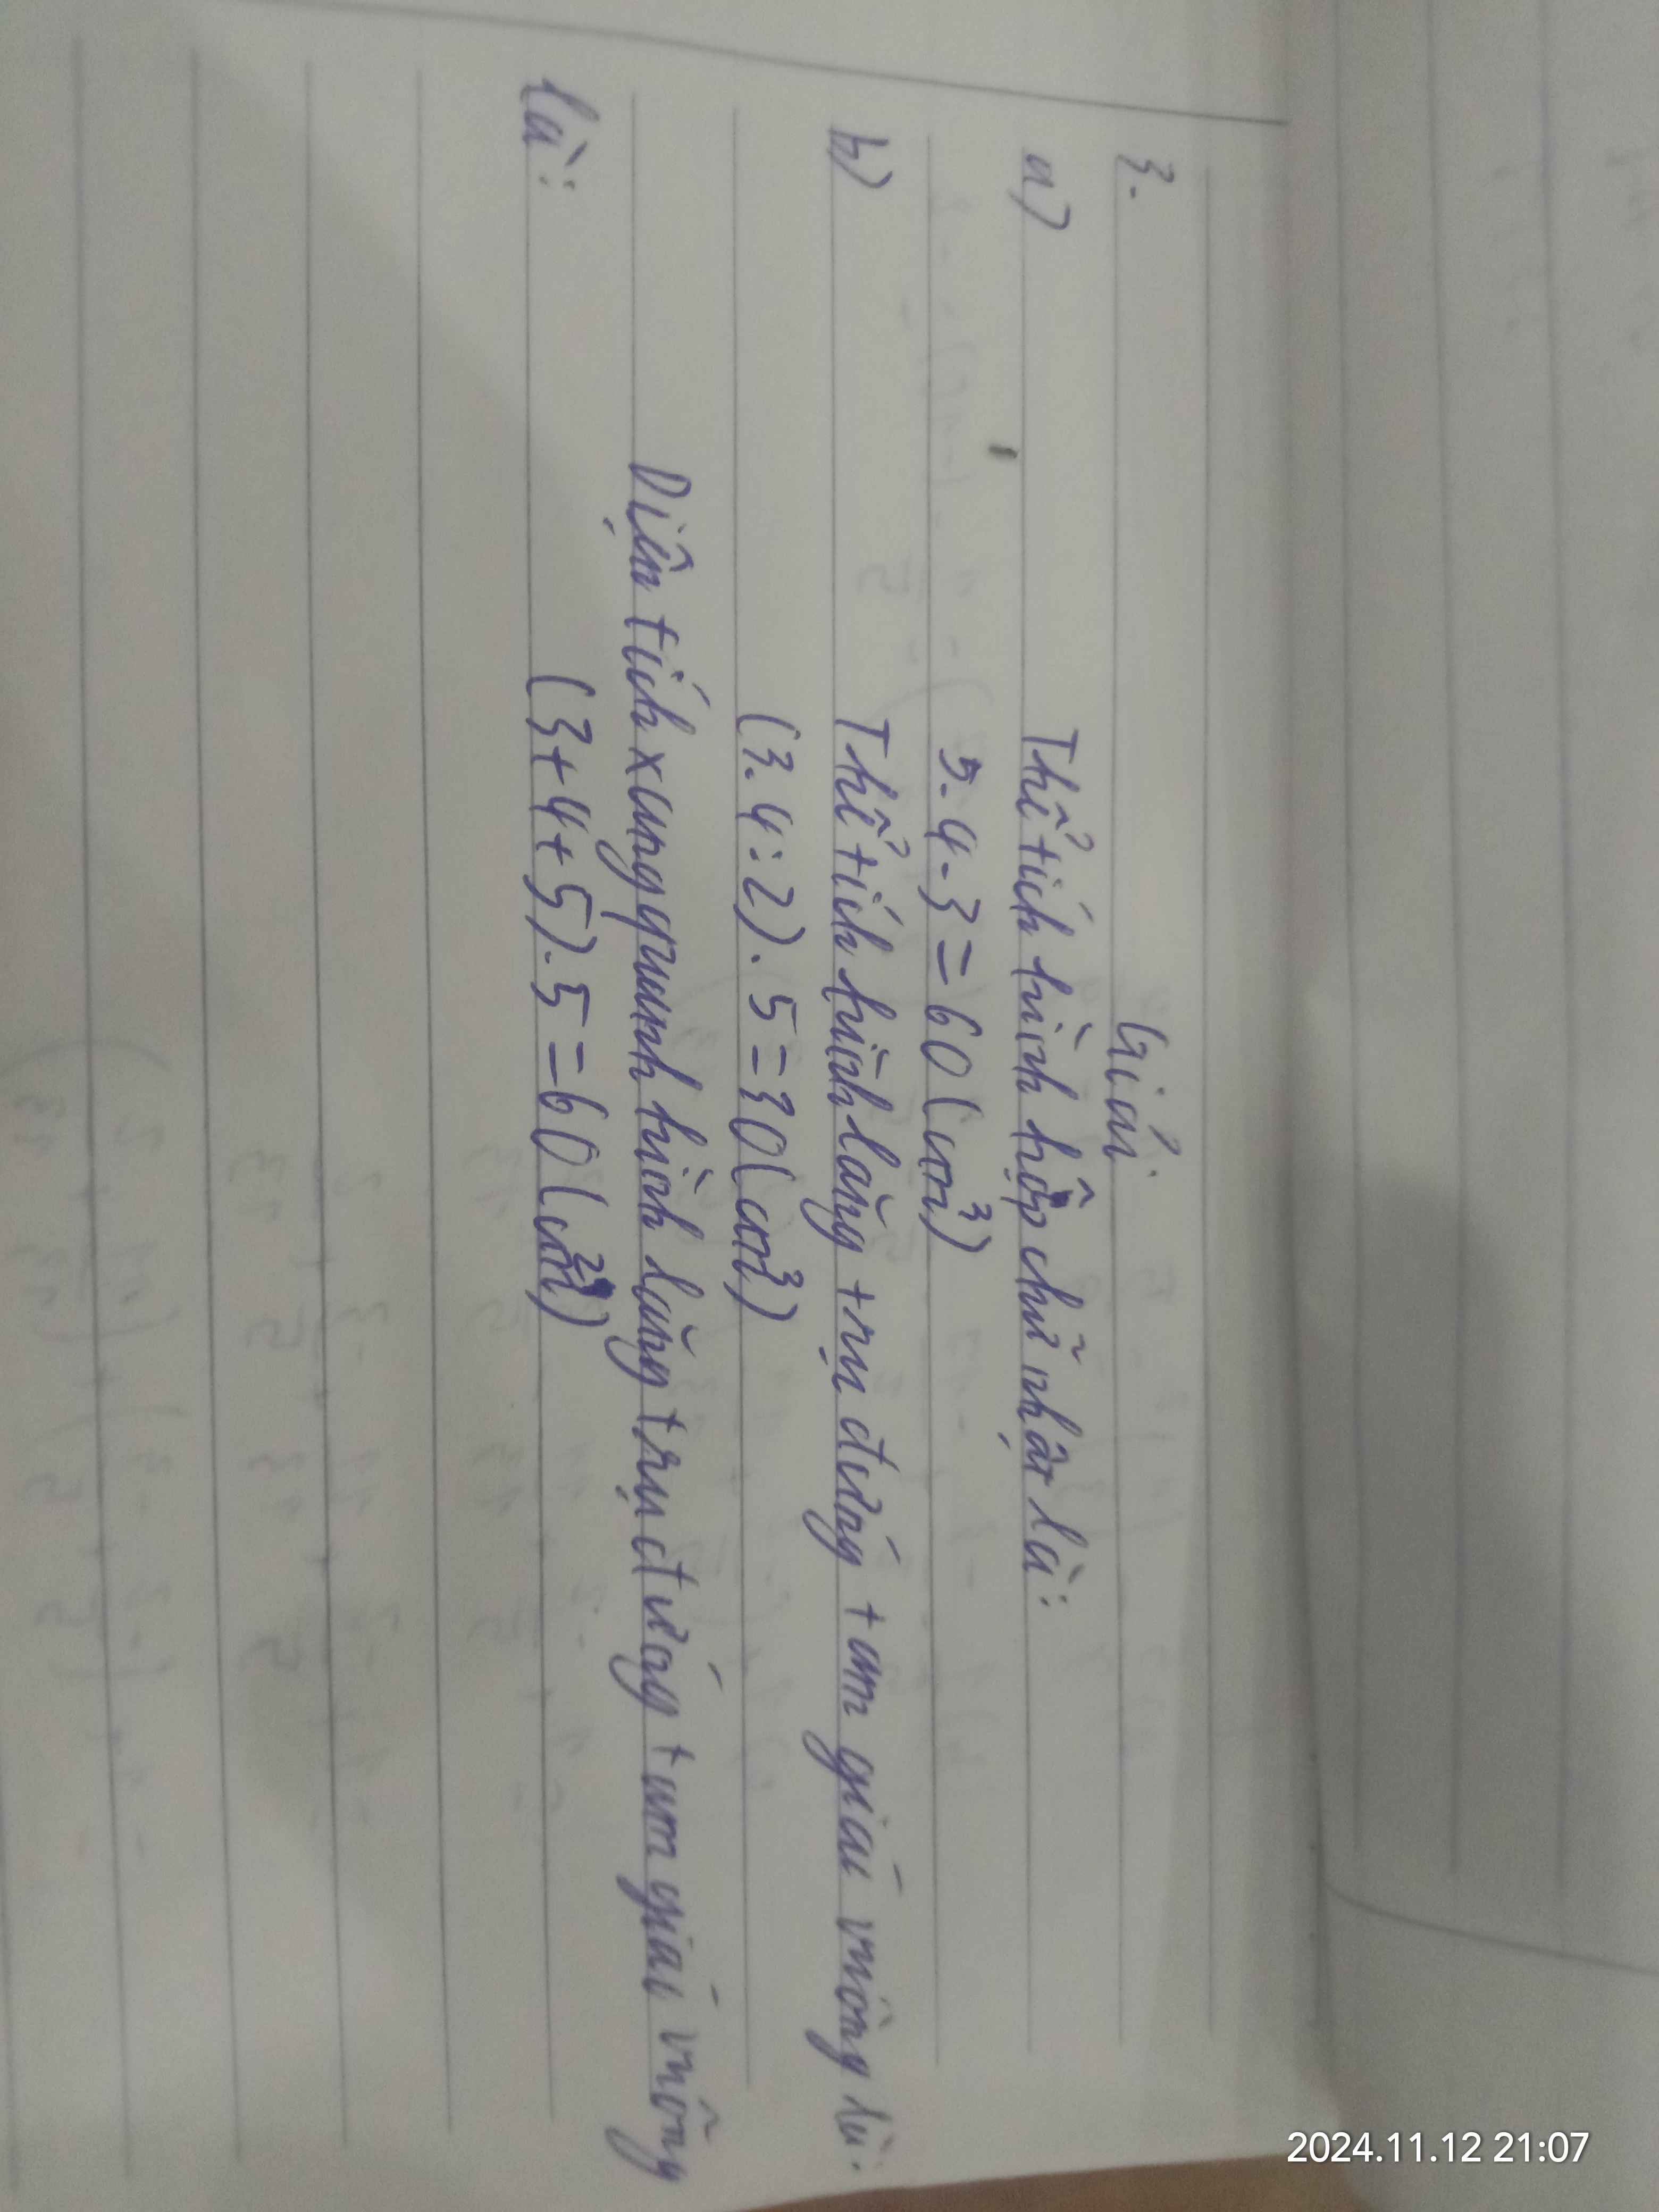 3. Giải
a) Thể tích hình hộp chữ nhật là:
5.4.3=60(cm³)
b) Thể tích hình lăng trụ đứng tam giác vuông là:
(3.4:2).5=30(cm³)
Diện tích xung quanh hình lăng trụ đứng tam giác vuông
là: (3+4+5).5=60(cm²)
2024.11.12 21:07